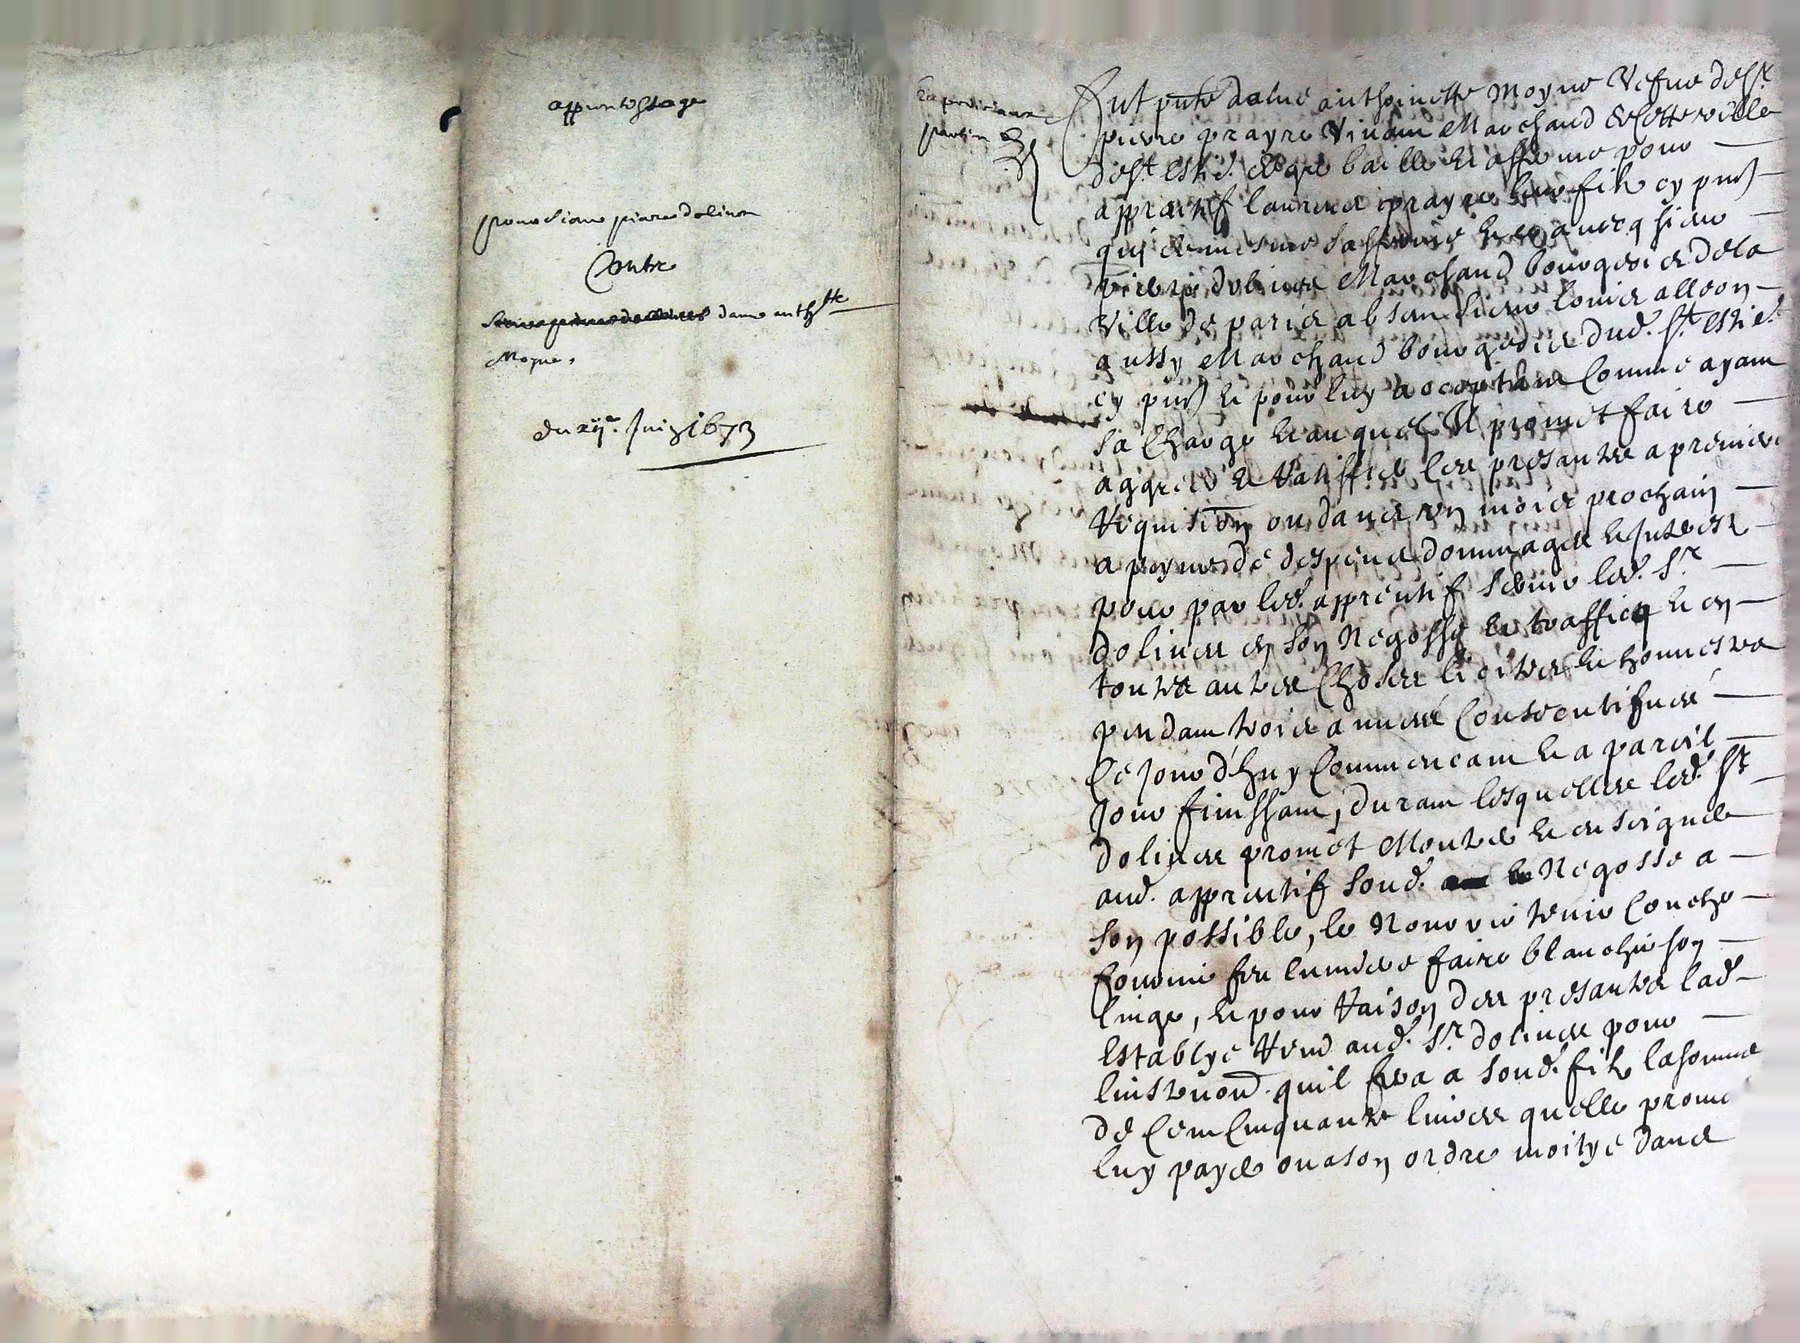 apprentissage
pour sieur pierre dolivier
Contre
dame anth.tte
Moyne.
du xij.e Juin 1673
Fut pnte dame anthoinette Moyne Vefve de S.r
pierre prayre Vivant Marchand de cette ville
de S.t Esti.e de gré baille et afferme pour
apprentif laurens prayre son filz cy pnt
qui de mesme s'afferme et ce avecq sieur
pierre dolivier Marchand bourgeois de la
Ville de paris absent sieur louis alleon
aussy Marchand bourgeois dud. S.t Esti.e
cy pnt et pour luy acceptant Comme ayant
sa Charge et auquel Il promet faire
aggreer et Ratiffier les presantes a premiere
Requisition ou dans un mois prochain
a peyne de despens dommages et Interestz
pour par led. apprentif servir led. S.r
dolivier en son Negosse et trafficq et en
toutes autres Choses licites et honnestes
pendant trois annees Consecutifves
Ce jourd'huy Commencant et a pareil
jour finissant, durant lesquelles led. S.r
dolivier promet Monstrer et enseigner
aud. apprentif Soud. Negosse a
son possible, le Nourrir tenir Couche
fournir feu lumiere faire blanchir son
linge, et pour Raison des presantes lad.
Establye aud. S.r dolivier pour
quil fera a soud. filz la somme
de Cent Cinquante livres quelle promet
luy payer ou a son ordre moitye dans